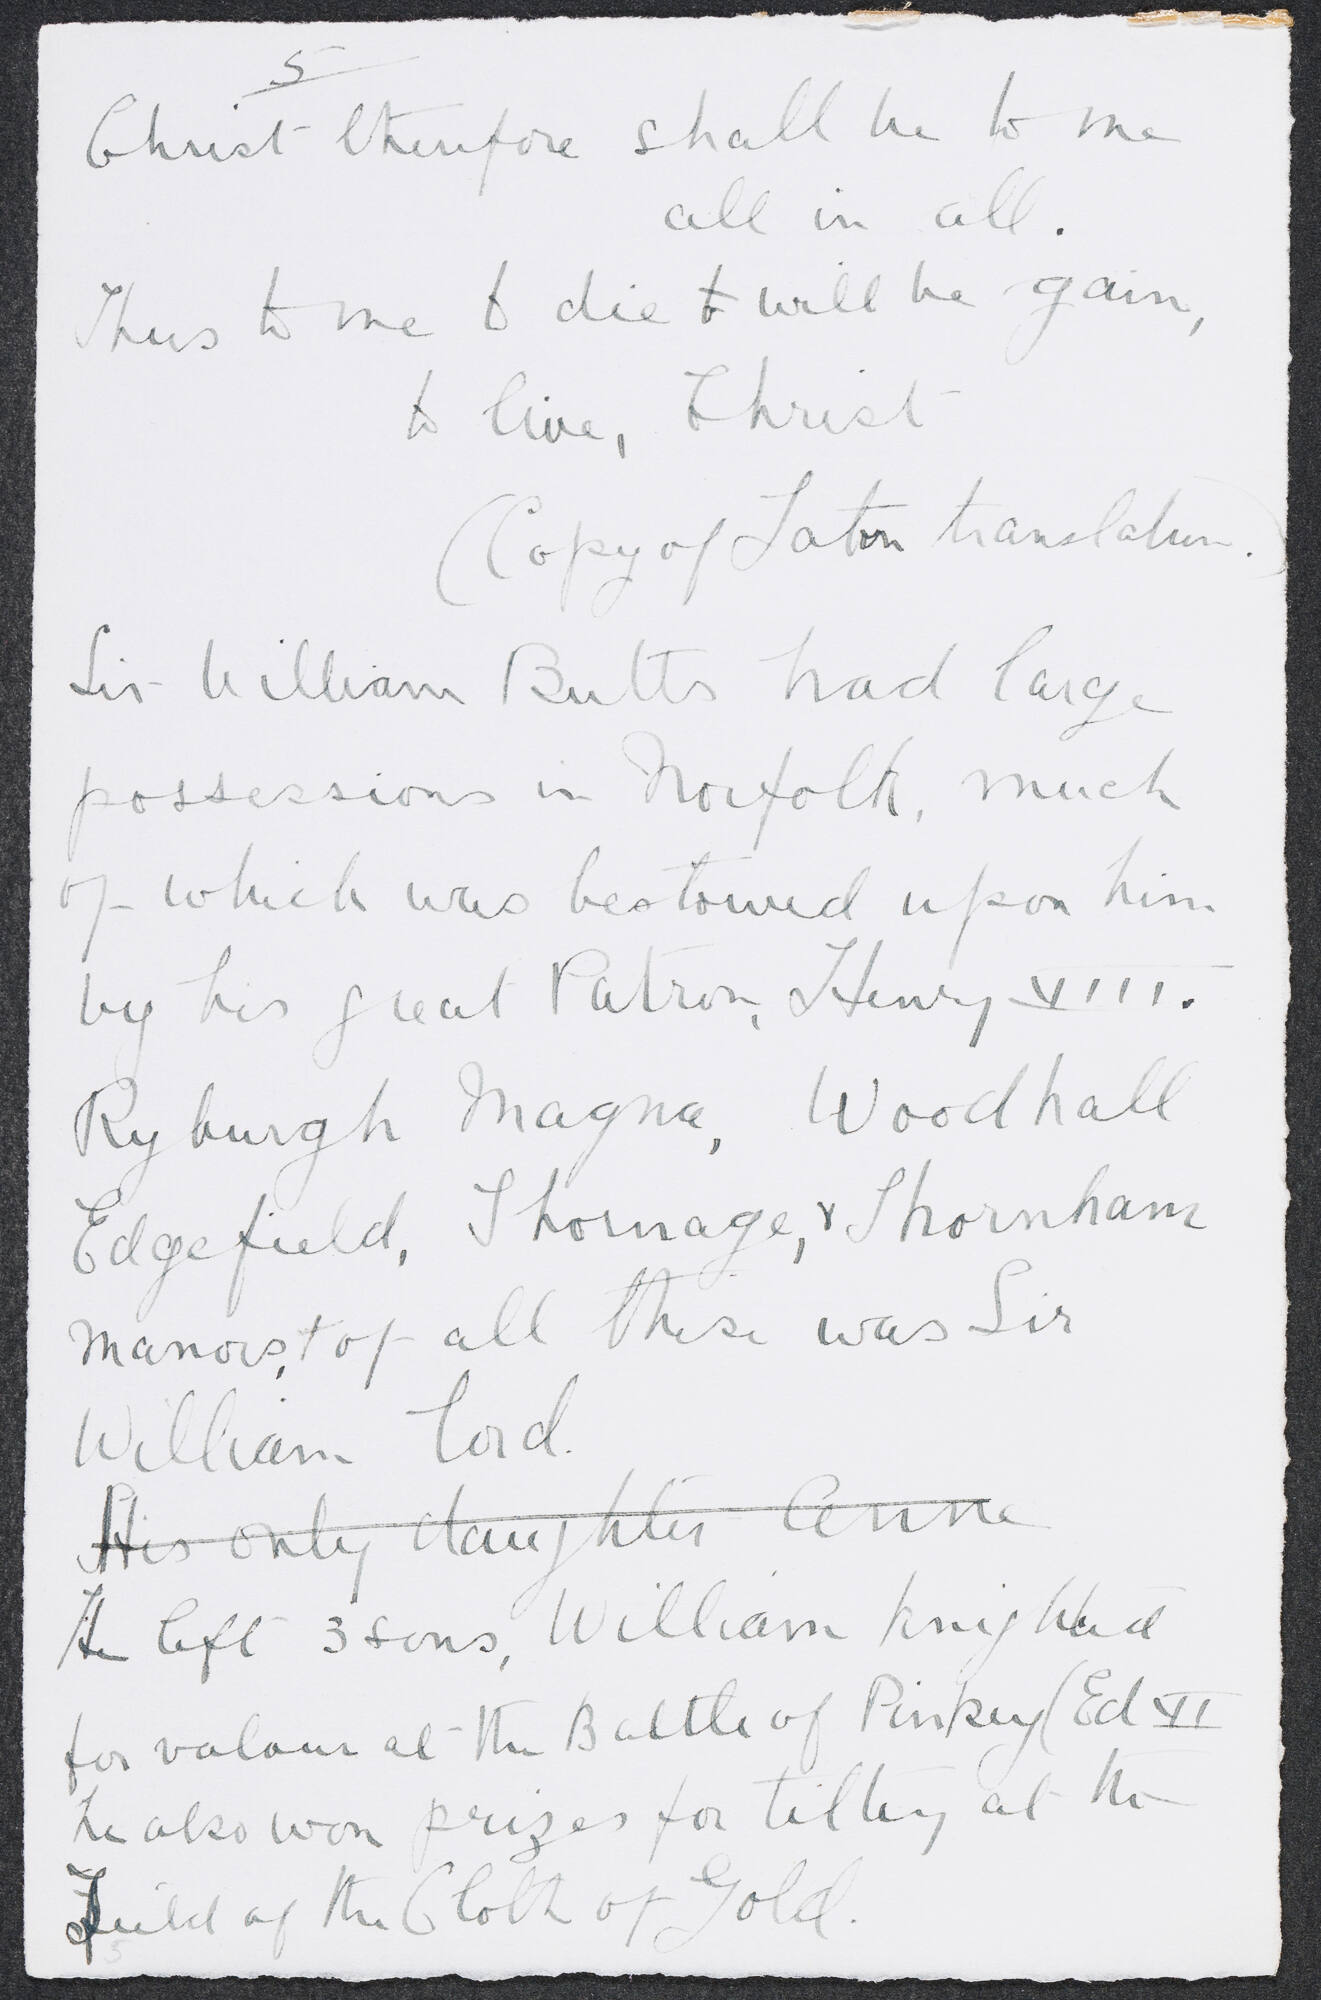 5
Christ therefore shall be to me
all in all.
Thus to me to die to will be gain,
to live, Christ
(Copy of Latin translation.)
Sir William Butts had large
possessions in Norfolk, much
of which was bestowed upon him
by his great Patron, Henry VIII.
Ryburgh Magna, Woodhall
Edgefield, Thornage, & Thornham
manors, & of all these was Sir
William Lord.
His only daughter Anne
He left 3 sons, William knighted
for valour at the Battle of Pinkey (Ed VI
he also won prizes for tilting at the
Feild of the Cloth of Gold.
5